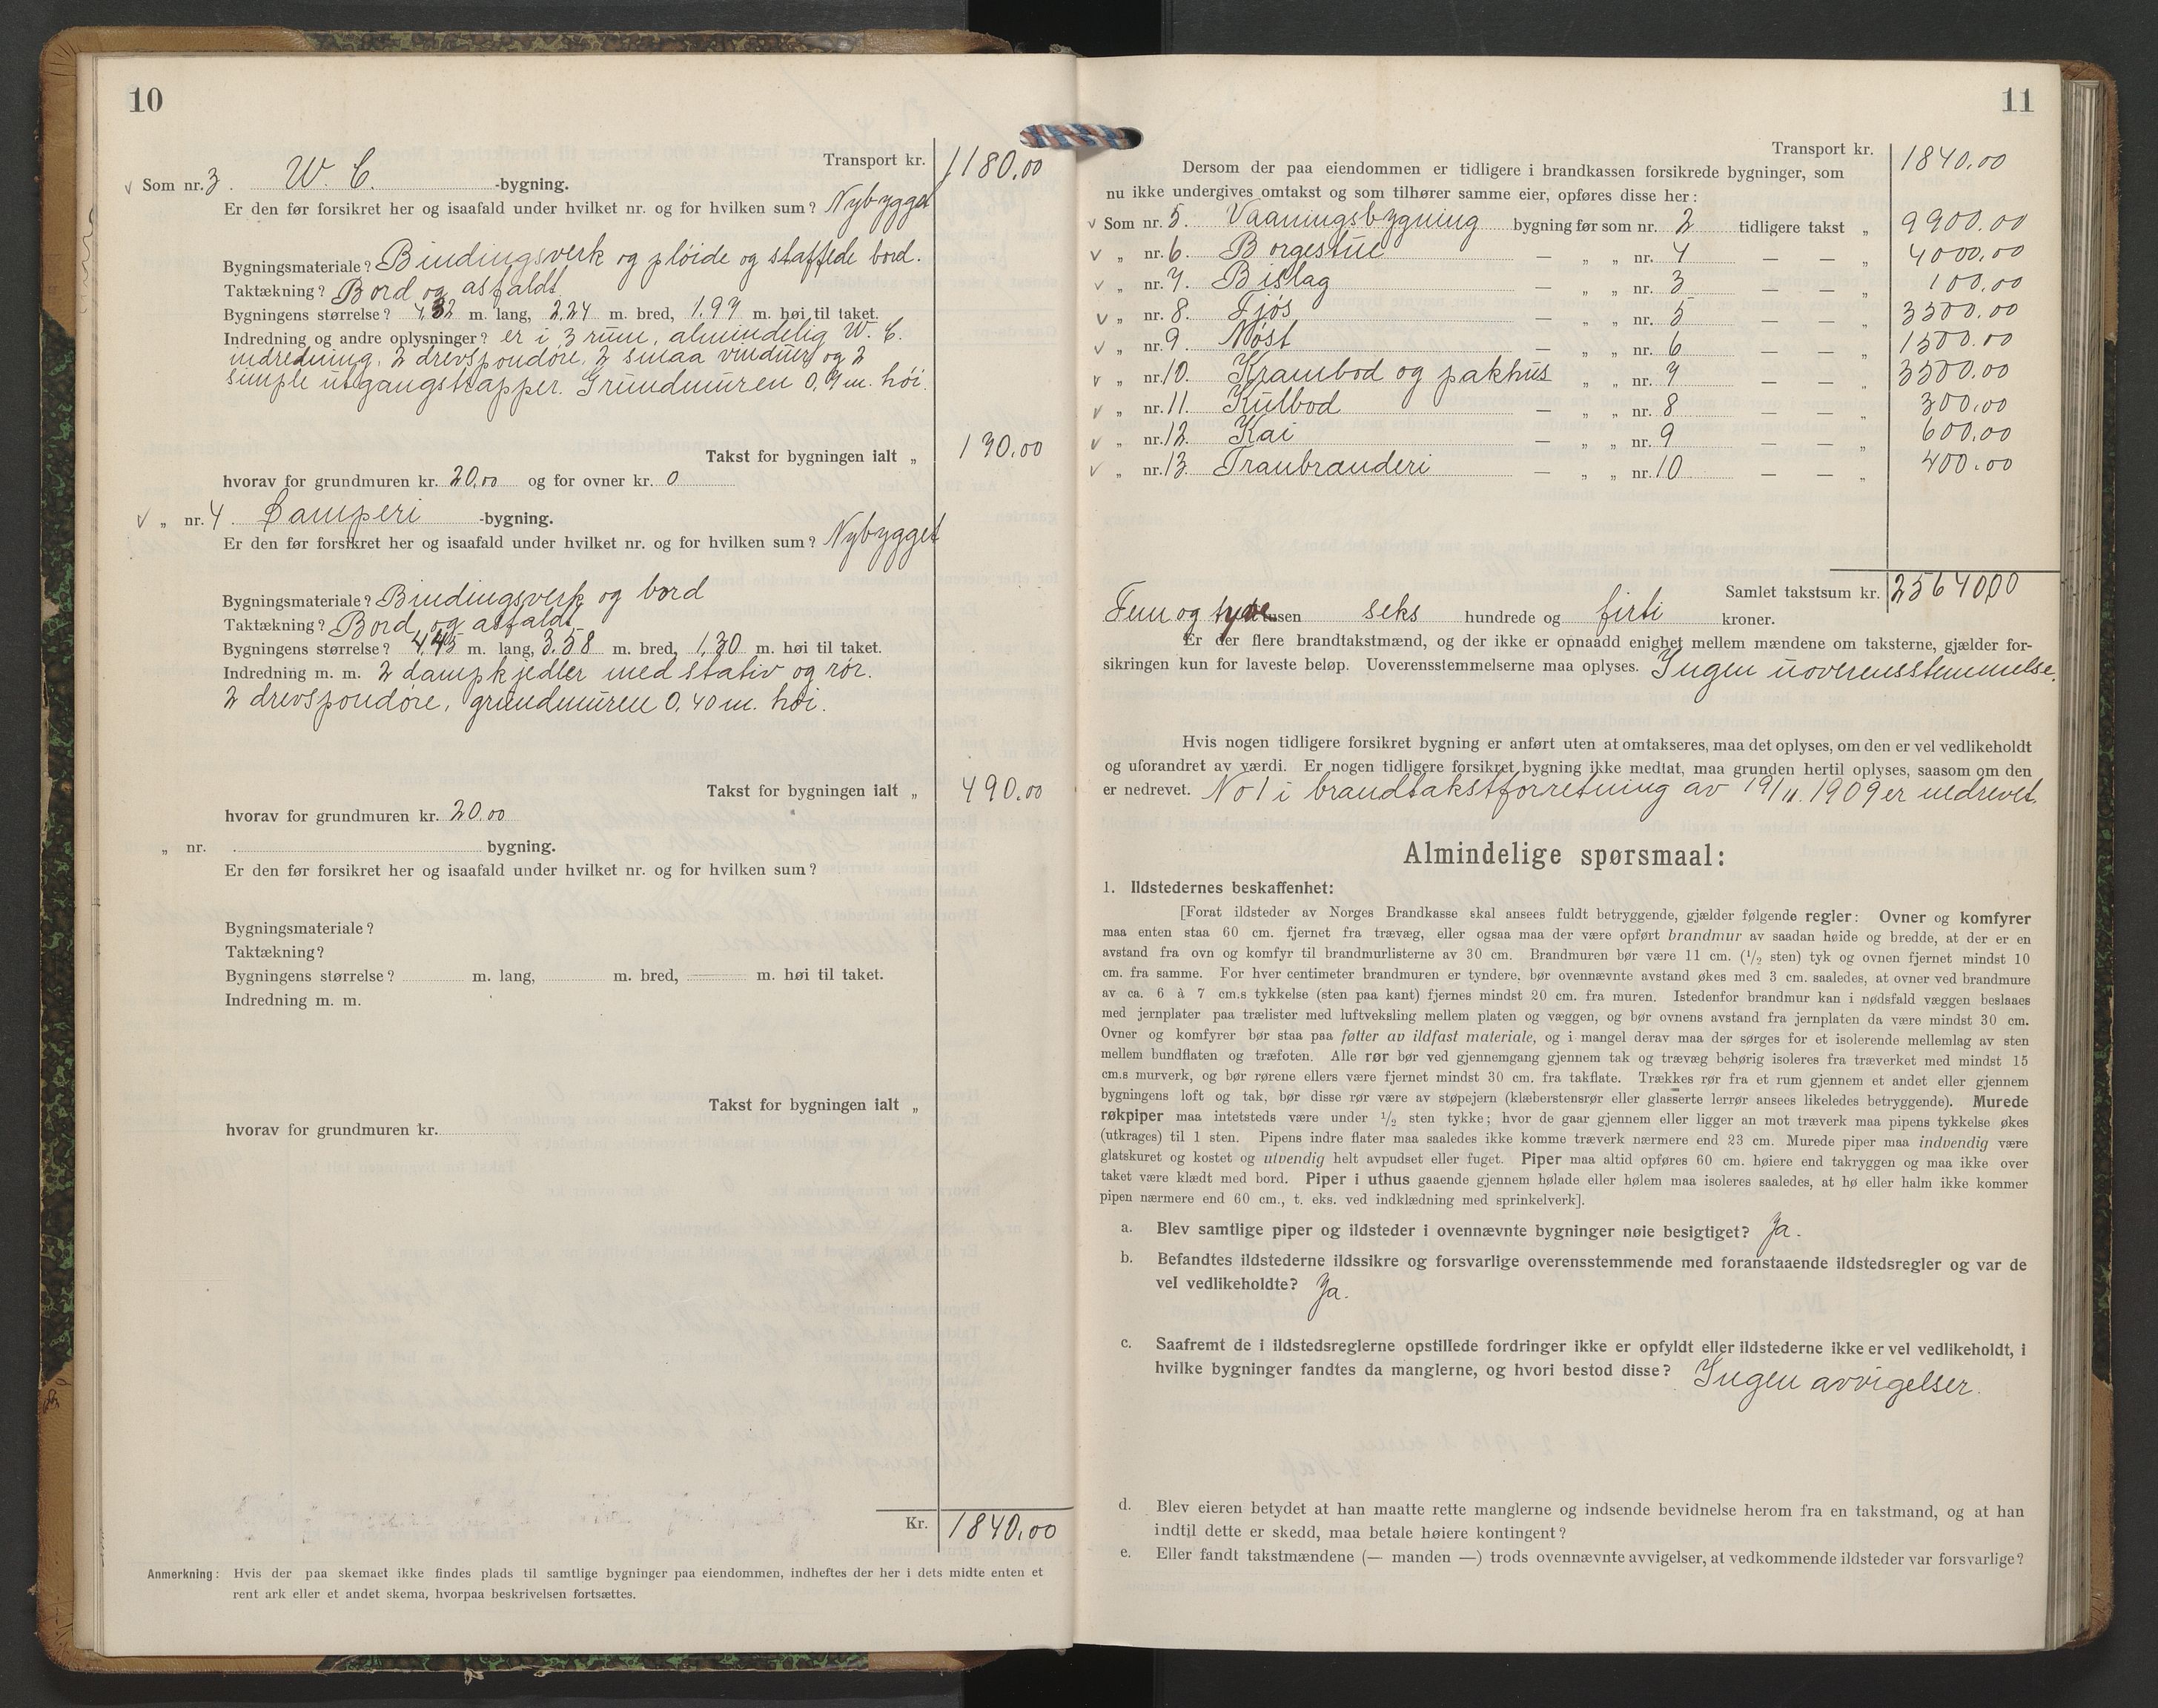 10
Transport kr. 1180,00
Som nr. 3. W. C. -bygning.
Er den før forsikret her og isaafald under hvilket nr. og for hvilken sum? Nybygget
Bygningsmateriale? Bindingsverk og pløide og staffede bord.
Taktækning? Bord og asfaldt
Bygningens størrelse? 4,32 m. lang, 2,24 m. bred, 1,97 m. høi til taket.
Indredning og andre oplysninger? er i 3 rum, almindelig W. C.
indredning, 2 drevspondøre, 2 smaa vinduer og 2
simple utgangstrapper. Grundmuren 0,9 m. høi.
Takst for bygningen ialt „ 170,00
hvorav for grundmuren kr. 20,00 og for ovner kr. 0
„ nr. 4. Damperi -bygning.
Er den før forsikret her og isaafald under hvilket nr. og for hvilken sum? Nybygget
Bygningsmateriale? Bindingsverk og bord
Taktækning? Bord og asfaldt
Bygningens størrelse? 4,45 m. lang, 3,58 m. bred, 1,30 m. høi til taket.
Indredning m. m. 2 dampkjedler med stativ og rør.
2 drevspondøre, grundmuren 0,40 m. høi.
Takst for bygningen ialt „ 490,00
hvorav for grundmuren kr. 20,00
„ nr. . bygning.
Er den før forsikret her og isaafald under hvilket nr. og for hvilken sum?
Bygningsmateriale?
Taktækning?
Bygningens størrelse? m. lang, m. bred, m. høi til taket.
Indredning m. m.
Takst for bygningen ialt „
hvorav for grundmuren kr.
Kr. 1840,00
Anmerkning: Hvis der paa skemaet ikke findes plads til samtlige bygninger paa eiendommen, indheftes der her i dets midte enten et
rent ark eller et andet skema, hvorpaa beskrivelsen fortsættes.
11
Transport kr. 1840,00
Dersom der paa eiendommen er tidligere i brandkassen forsikrede bygninger, som
nu ikke undergives omtakst og som tilhører samme eier, opføres disse her:
Som nr. 5. Vaaningsbygning bygning før som nr. 2 tidligere takst „ 9900,00
„ nr. 6. Borgestue — „ „ nr. 4 — — „ 4000,00
„ nr. 7. Bislag — „ „ nr. 3 — — „ 100,00
„ nr. 8. Fjøs — „ „ nr. 5 — — „ 3500,00
„ nr. 9. Nøst — „ „ nr. 6 — — „ 1500,00
„ nr. 10. Krambod og pakhus „ „ nr. 7 — — „ 3500,00
„ nr. 11. Kulbod — „ „ nr. 8 — — „ 300,00
„ nr. 12. Kai — „ „ nr. 9 — — „ 600,00
„ nr. 13. Tranbranderi — „ „ nr. 10 — — „ 400,00
Samlet takstsum kr. 25640,00
Fem og tyve tusen seks hundrede og firti kroner.
Er der flere brandtakstmænd, og der ikke er opnaadd enighet mellem mændene om taksterne, gjælder for-
sikringen kun for laveste beløp. Uoverensstemmelserne maa oplyses. Ingen uoverensstemmelse.
Hvis nogen tidligere forsikret bygning er anført uten at omtakseres, maa det oplyses, om den er vel vedlikeholdt
og uforandret av værdi. Er nogen tidligere forsikret bygning ikke medtat, maa grunden hertil oplyses, saasom om den
er nedrevet. No 1 i brandtakstforretning av 19/11. 1909 er nedrevet.
Almindelige spørsmaal:
1. Ildstedernes beskaffenhet:
[Forat ildsteder av Norges Brandkasse skal ansees fuldt betryggende, gjælder følgende regler: Ovner og komfyrer
maa enten staa 60 cm. fjernet fra trævæg, eller ogsaa maa der være opført brandmur av saadan høide og bredde, at der er en
avstand fra ovn og komfyr til brandmurlisterne av 30 cm. Brandmuren bør være 11 cm. (1/2 sten) tyk og ovnen fjernet mindst 10
cm. fra samme. For hver centimeter brandmuren er tyndere, bør ovennævnte avstand økes med 3 cm. saaledes, at ovner ved brandmure
av ca. 6 à 7 cm.s tykkelse (sten paa kant) fjernes mindst 20 cm. fra muren. Istedenfor brandmur kan i nødsfald væggen beslaaes
med jernplater paa trælister med luftveksling mellem platen og væggen, og bør ovnens avstand fra jernplaten da være mindst 30 cm.
Ovner og komfyrer bør staa paa føtter av ildfast materiale, og i mangel derav maa der sørges for et isolerende mellemlag av sten
mellem bundflaten og træfoten. Alle rør bør ved gjennemgang gjennem tak og trævæg behørig isoleres fra træverket med mindst 15
cm.s murverk, og bør rørene ellers være fjernet mindst 30 cm. fra takflate. Trækkes rør fra et rum gjennem et andet eller gjennem
bygningens loft og tak, bør disse rør være av støpejern (klæberstensrør eller glasserte lerrør ansees likeledes betryggende). Murede
røkpiper maa intetsteds være under 1/2 sten tykke; hvor de gaar gjennem eller ligger an mot træverk maa pipens tykkelse økes
(utkrages) til 1 sten. Pipens indre flater maa saaledes ikke komme træverk nærmere end 23 cm. Murede piper maa indvendig være
glatskuret og kostet og utvendig helt avpudset eller fuget. Piper maa altid opføres 60 cm. høiere end takryggen og maa ikke over
taket være klædt med bord. Piper i uthus gaaende gjennem hølade eller hølem maa isoleres saaledes, at hø eller halm ikke kommer
pipen nærmere end 60 cm., t. eks. ved indklædning med sprinkelverk].
a. Blev samtlige piper og ildsteder i ovennævnte bygninger nøie besigtiget? Ja.
b. Befandtes ildstederne ildssikre og forsvarlige overensstemmende med foranstaaende ildstedsregler og var de
vel vedlikeholdte? Ja.
c. Saafremt de i ildstedsreglerne opstillede fordringer ikke er opfyldt eller ildstederne ikke er vel vedlikeholdt, i
hvilke bygninger fandtes da manglerne, og hvori bestod disse? Ingen avvigelser.
d. Blev eieren betydet at han maatte rette manglerne og indsende bevidnelse herom fra en takstmand, og at han
indtil dette er skedd, maa betale høiere kontingent?
e. Eller fandt takstmændene (— manden —) trods ovennævnte avvigelser, at vedkommende ildsteder var forsvarlige?